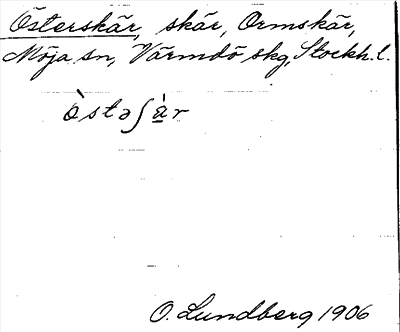 Österskär, skär, Ormskär,
Möja sn, Värmdö skg, Stockh. l.
ö̀stəʃä̀r
O. Lundberg 1906